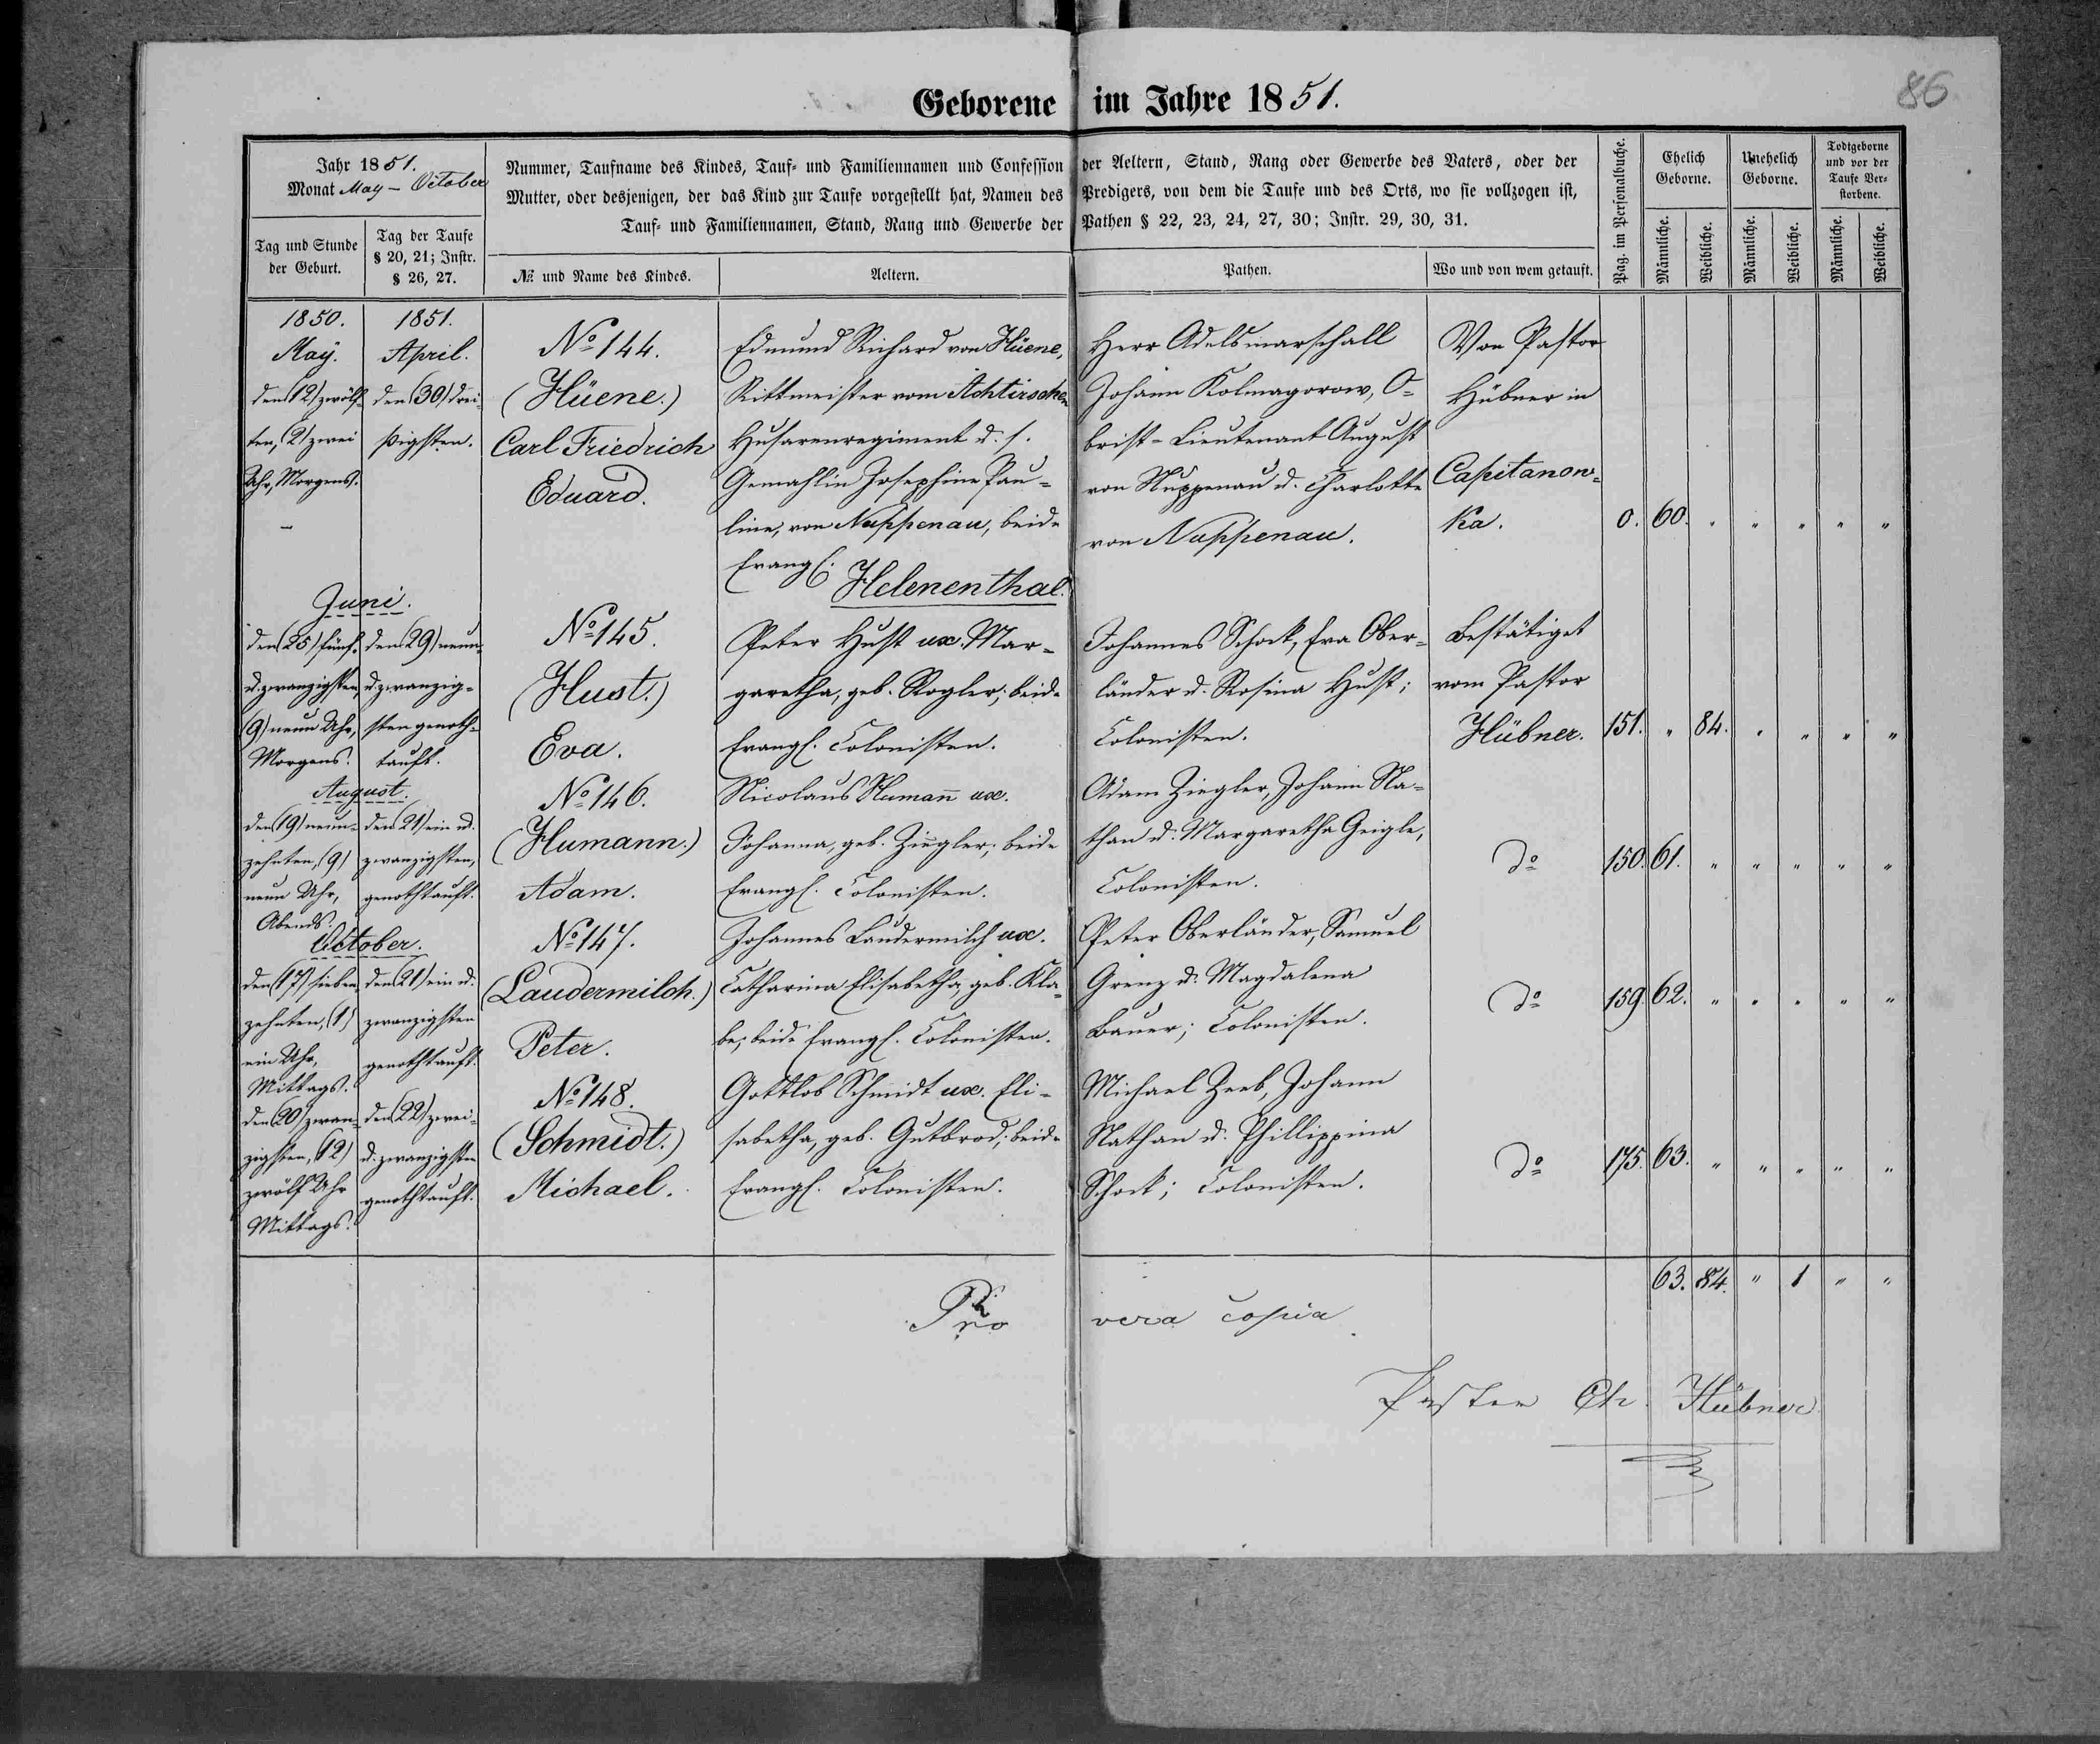 86
Geborene im Jahre 1851.
Jahr 1851.
Monat May – October
Tag und Stunde
der Geburt.
Tag der Taufe
§ 20, 21; Instr.
§ 26, 27.
Nummer, Taufname des Kindes, Tauf= und Familiennamen und Confession der Aeltern, Stand, Rang oder Gewerbe des Vaters, oder der
Mutter, oder desjenigen, der das Kind zur Taufe vorgestellt hat, Namen des Predigers, von dem die Taufe und des Orts, wo sie vollzogen ist,
Tauf= und Familiennamen, Stand, Rang und Gewerbe der Pathen § 22, 23, 24, 27, 30; Instr. 29, 30, 31.
№ und Name des Kindes.
Aeltern.
Pathen.
Wo und von wem getauft.
Pag. im Personalbuche.
Ehelich
Geborne.
Unehelich
Geborne.
Todtgeborne
und vor der
Taufe Ver=
storbene.
Männliche.
Weibliche.
Männliche.
Weibliche.
Männliche.
Weibliche.
1850.
May.
den (12) zwölf=
ten, (2) zwei
Uhr, Morgens.
1851.
April.
den (30) drei=
ßigsten.
No 144.
(Hüene.)
Carl Friedrich
Eduard.
Edmund Richard von Hüene,
Rittmeister vom Achtirschen
Husarenregiment u. s.
Gemahlin Josephine Pau=
line, von Nuppenau, beide
Evangl.
Herr Adelsmarschall
Johann Kolmagorow, O=
brist=Lieutenant August
von Nuppenau u. Charlotte
von Nuppenau.
Von Pastor
Hübner in
Capitanow=
ka.
0. 60. " " " " "
Helenenthal.
Juni.
den (25) fünf=
u. zwanzigsten,
(9) neun Uhr,
Morgens.
den (29) neun=
u. zwanzig=
sten genoth=
tauft.
No 145.
(Hust.)
Eva.
Peter Hust ux. Mar=
garetha, geb. Rogler; beide
Evangl. Colonisten.
Johannes Schock, Eva Ober=
länder u. Rosina Hust;
Colonisten.
Bestätiget
vom Pastor
Hübner.
151. " 84. " " " "
August.
den (19) neun=
zehnten, (9)
neun Uhr,
Abends.
den (21) ein u.
zwanzigsten,
genothtauft.
No 146.
(Humann.)
Adam.
Nicolaus Humann ux.
Johanna, geb. Ziegler; beide
Evangl. Colonisten.
Adam Ziegler, Johann Na=
than u. Margaretha Geigle,
Colonisten.
do
150. 61. " " " " "
October.
den (17) sieben=
zehnten, (1)
ein Uhr,
Mittags.
den (21) ein u.
zwanzigsten
genothtauft.
No 147.
(Laudermilch.)
Peter.
Johannes Laudermilch ux.
Catharina Elisabetha, geb. Kla=
be; beide Evangl. Colonisten.
Peter Oberländer, Samuel
Grenz u. Magdalena
Bauer; Colonisten.
do
159. 62. " " " " "
den (20) zwan=
zigsten, (12)
zwölf Uhr
Mittags.
den (22) zwei=
u. zwanzigsten
genothtauft.
No 148.
(Schmidt.)
Michael.
Gottlob Schmidt ux. Eli=
sabetha, geb. Gutbrod; beide
Evangl. Colonisten.
Michael Zeeb, Johann
Nathan u. Phillippina
Schock; Colonisten.
do
175. 63. " " " " "
63. 84. " 1 " "
Pro vera copia
Pastor Ch. Hübner